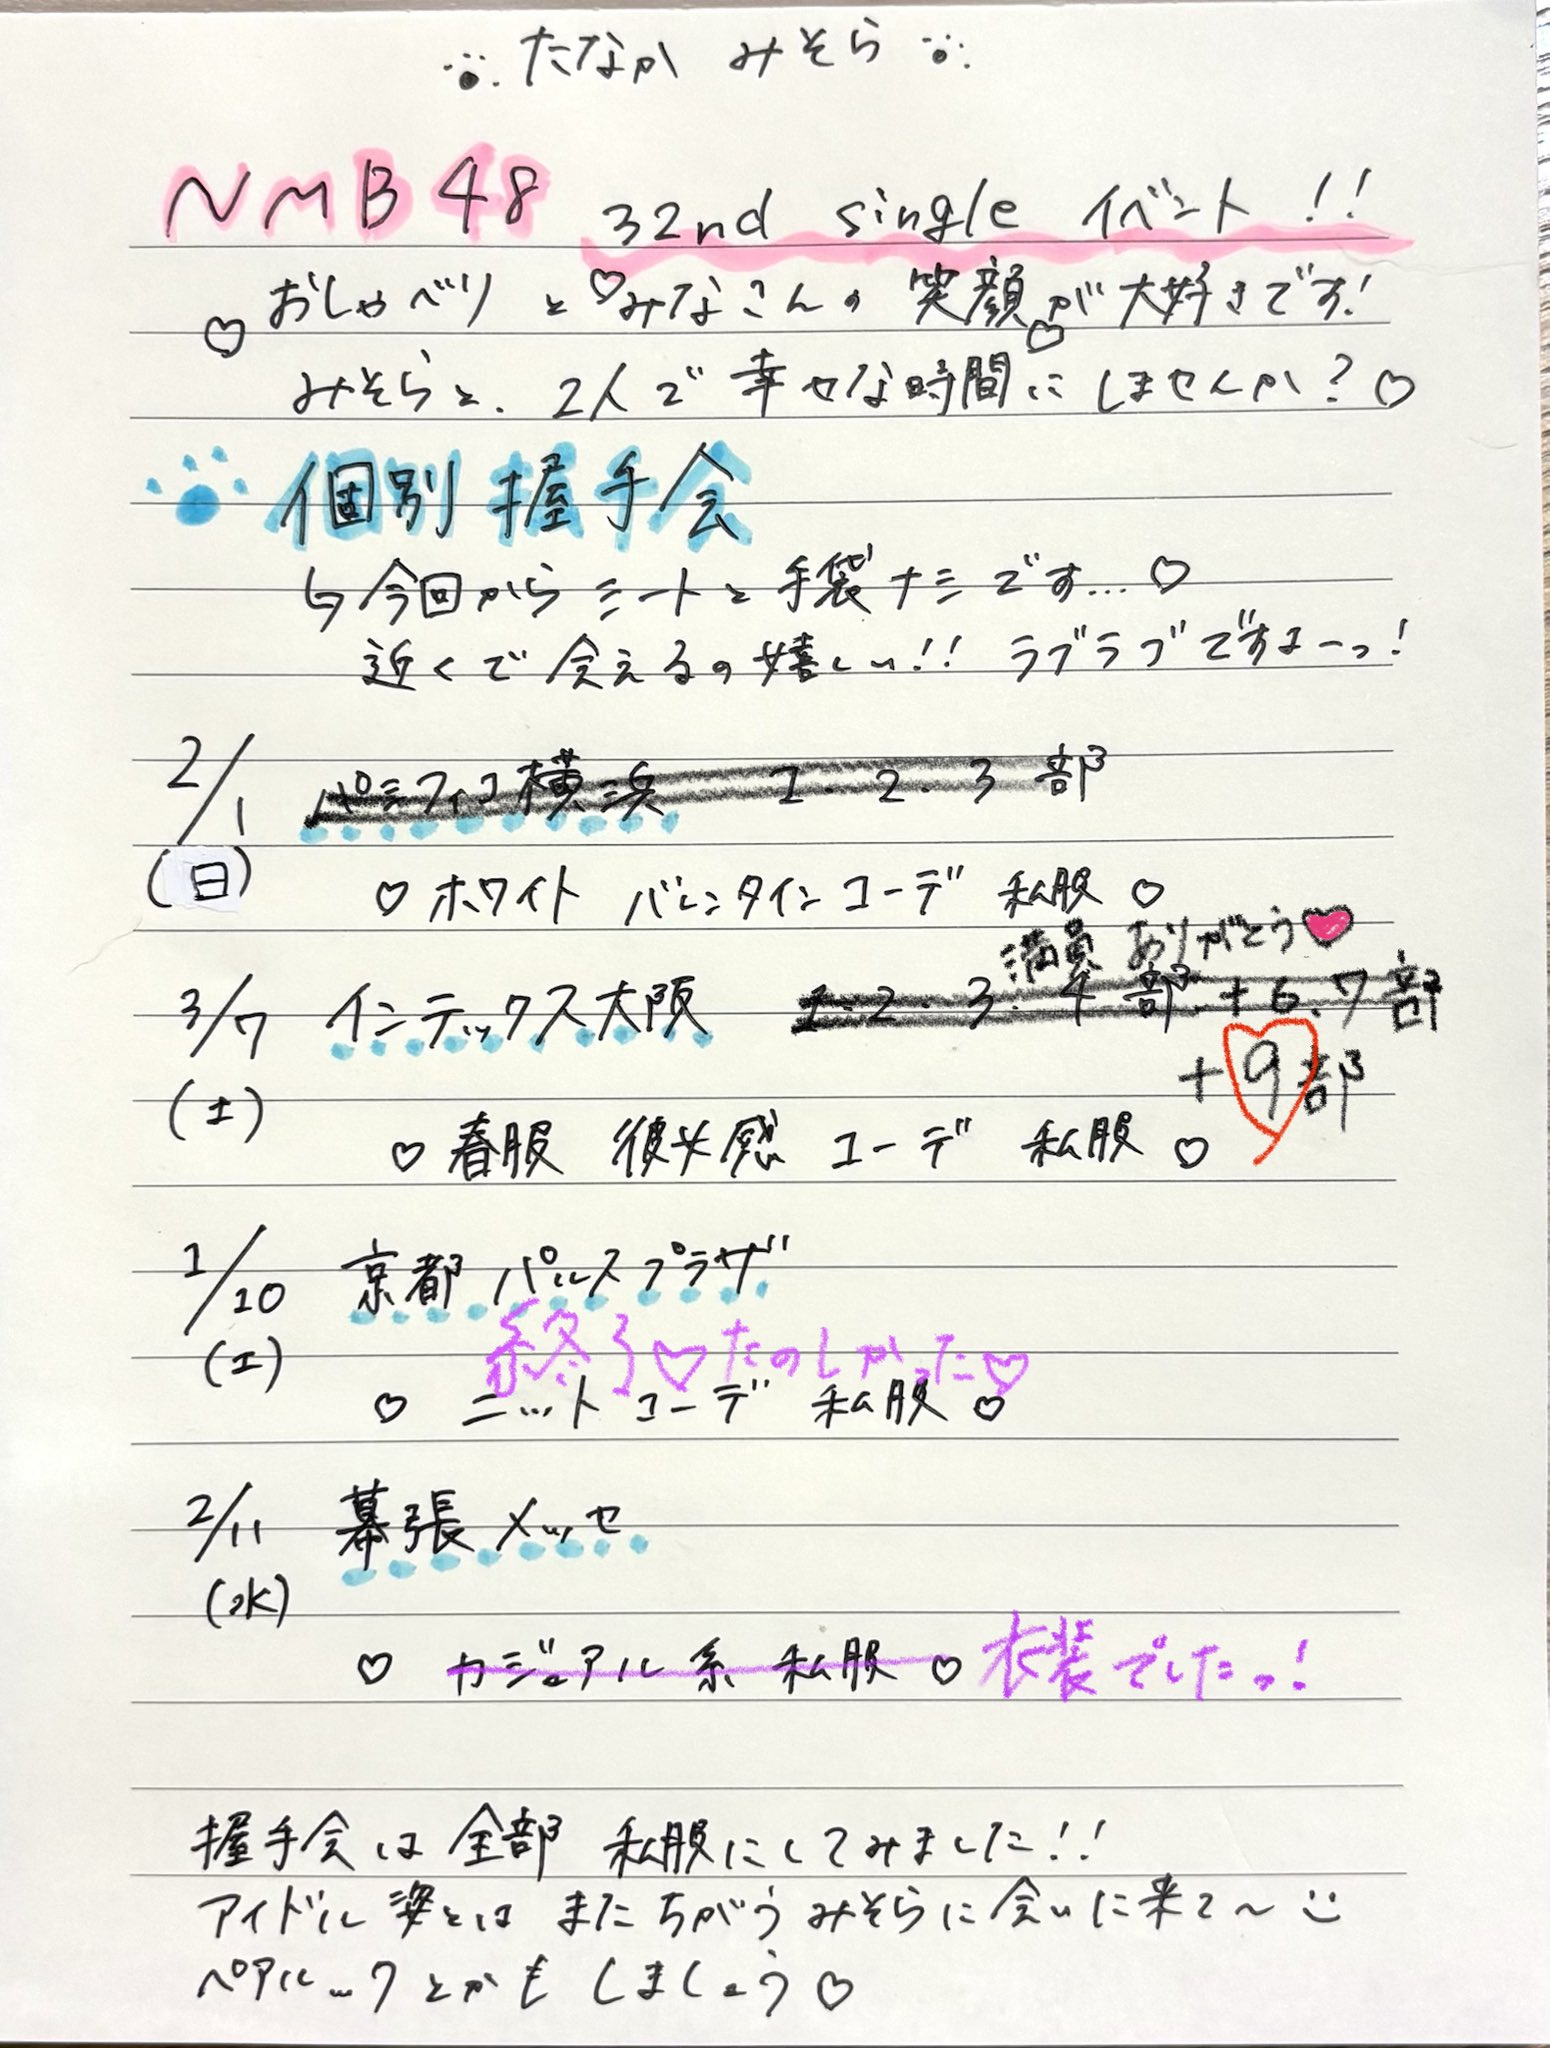 たなか みそら
NMB48 32nd single イベント!!
おしゃべりと♡みなさんの笑顔が大好きです!
♡みそらと、2人で幸せな時間にしませんか?♡
個別握手会
↳今回からシートと手袋ナシです…♡
近くで会えるの嬉しい!! ラブラブですよーっ!
2/1 パシフィコ横浜 1.2.3部
(日)
♡ホワイト バレンタインコーデ 私服♡
満員 ありがとう♥
3/7 インテックス大阪 1.2.3.4部+6.7部
+9部
(土)
♡春服 彼女感 コーデ 私服♡
1/10 京都 パルスプラザ
(土) 終了♡たのしかった♡
♡ニットコーデ 私服♡
2/11 幕張メッセ
(水)
♡カジュアル系 私服♡ 衣装でしたっ!
握手会は全部 私服にしてみました!!
アイドル姿とは またちがう みそらに会いに来て〜
ペアルックとかも しましょう♡